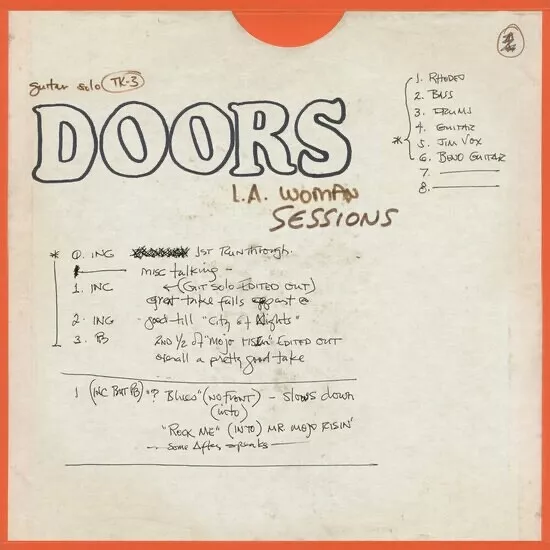 guitar solo TK-3
DOORS
L.A. WOMAN
SESSIONS
1. RHODEO
2. BASS
3. DRUMS
4. GUITAR
* 5. JIM VOX
6. BEND GUITAR
7.
8.
* 0. ING 1ST Runthrough.
misc talking -
1. INC ←(GIT SOLO EDITED OUT)
great take falls appart @
2. ING good till "City of Nights"
3. PB 2ND 1/2 of "MOJO RISIN" EDITED OUT
overall a pretty good take
1 (INC BUTT PB) "? Blues" (NO FRONT) - slows down
(into)
"ROCK ME" (INTO) MR. MOJO RISIN'
- some After speaks -